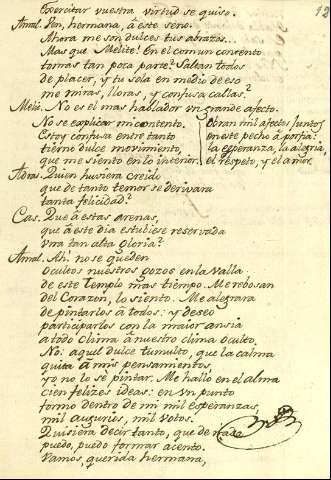 Exercitar vuestra virtud se quiso.
Amal. Ven, hermana, â este seno.
Ahora me son dulces tus abrazos...
Mas que Melite! En el comun contento
tomas tan poca parte? Saltan todos
de placer, y tu sola en medio de eso
me miras, lloras, y confusa callas?
Meli. No es el mas hablador vn grande afecto.
No se explicar mi contento.
Estoy confusa entre tanto
tierno dulce movimiento,
que me siento en lo interior.
Obran mil afectos juntos
en este pecho â porfia:
la esperanza, la alegria,
el respeto, y el amor.
Adras. Quien huviera creido
que de tanto temor se derivara
tanta felicidad?
Cas. Que â estas arenas,
que â este dia estubiese reservada
vna tan alta gloria?
Amal. Ah! no se queden
ocultos nuestros gozos en la valla
de este Templo mas tiempo. Me rebosan
del Corazon, lo siento. Me alegrara
de pintarlos â todos: y deseo
participarlos con la maior ansia
a todo clima â nuestro clima oculto.
No: aquel dulce tumulto, que la calma
quita â mis pensamientos
yo no lo se pintar. Me hallo en el alma
cien felizes ideas: en vn punto
formo dentro de mi mil esperanzas,
mil augurios, mil votos.
Quisiera decir tanto, que de nada
puedo, puedo formar acento.
Vamos, querida hermana,